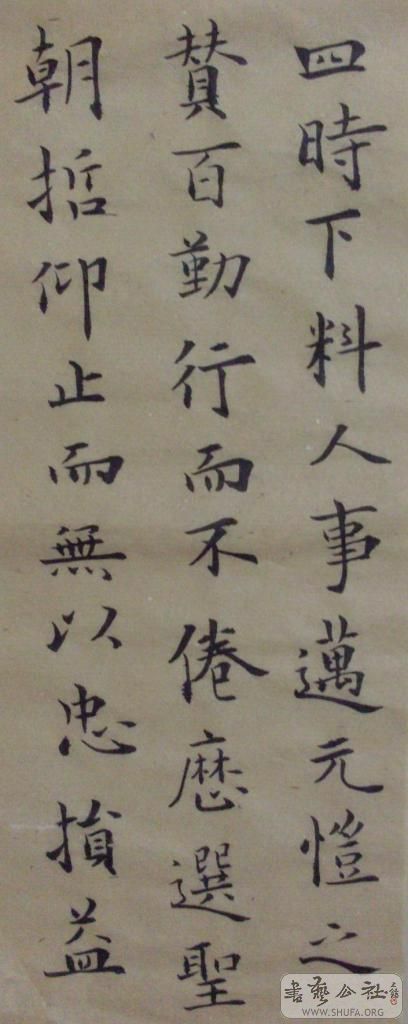 四時下料人事邁元愷之
贊百勤行而不倦歷選聖
朝哲仰止而無以忠損益
書藝公社
WWW.SHUFA.ORG